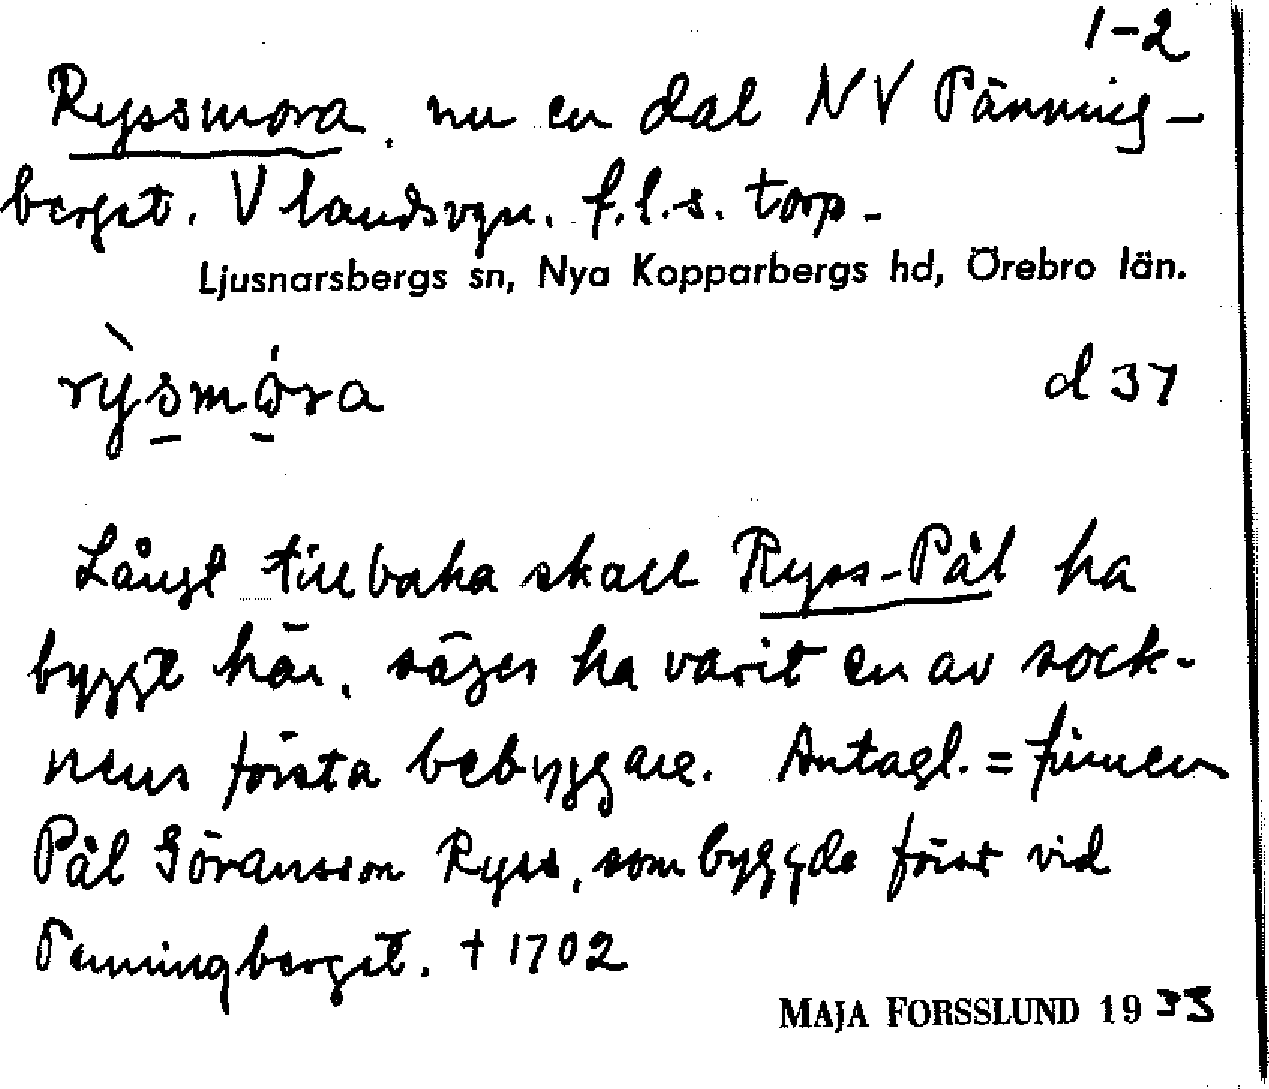 1-2
Ryssmora, nu en dal NV Pänning-
berget. V landsvgn. f.l.s. torp.
Ljusnarsbergs sn, Nya Kopparbergs hd, Örebro län.
rỳsmó̱ra d 37
Långt tillbaka skall Ryss-Pål ha
byggt här, säges ha varit en av sock-
nens första bebyggare. Antagl. = finnen
Pål Göransson Ryss, som byggde först vid
Penningberget. † 1702
MAJA FORSSLUND 1935